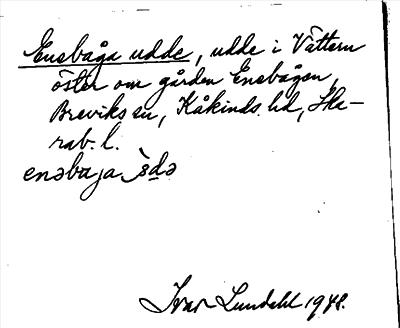 Enebåga udde, udde i Vättern
öster om gården Enebågen,
Breviks sn, Kåkinds hd, Ska-
rab. l.
enəbaja
Ivar Lundahl 1948.